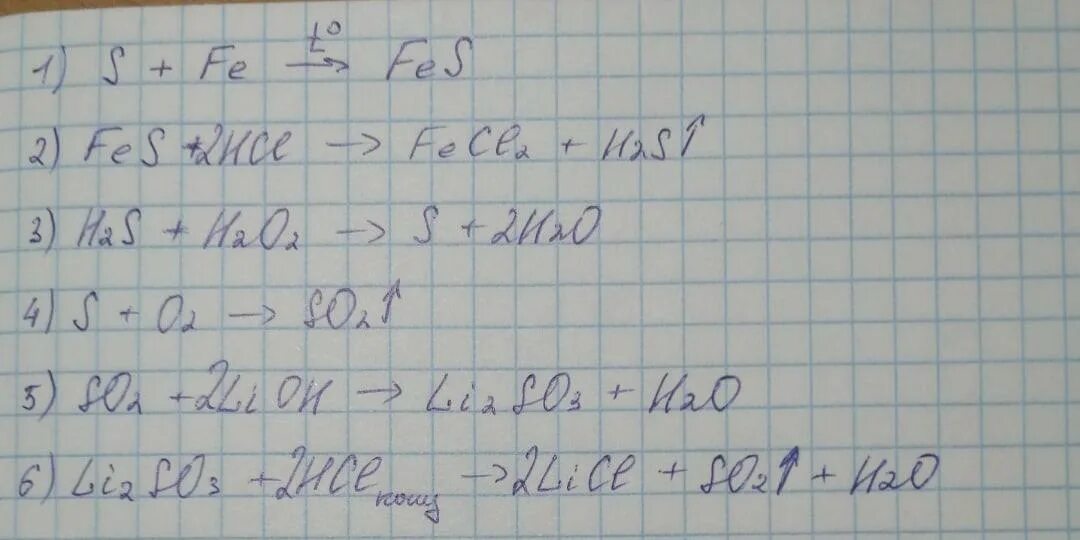 1) S + Fe t° → FeS
2) FeS + 2HCl → FeCl₂ + H₂S↑
3) H₂S + H₂O₂ → S + 2H₂O
4) S + O₂ → SO₂↑
5) SO₂ + 2LiOH → Li₂SO₃ + H₂O
6) Li₂SO₃ + 2HCl конц → 2LiCl + SO₂↑ + H₂O